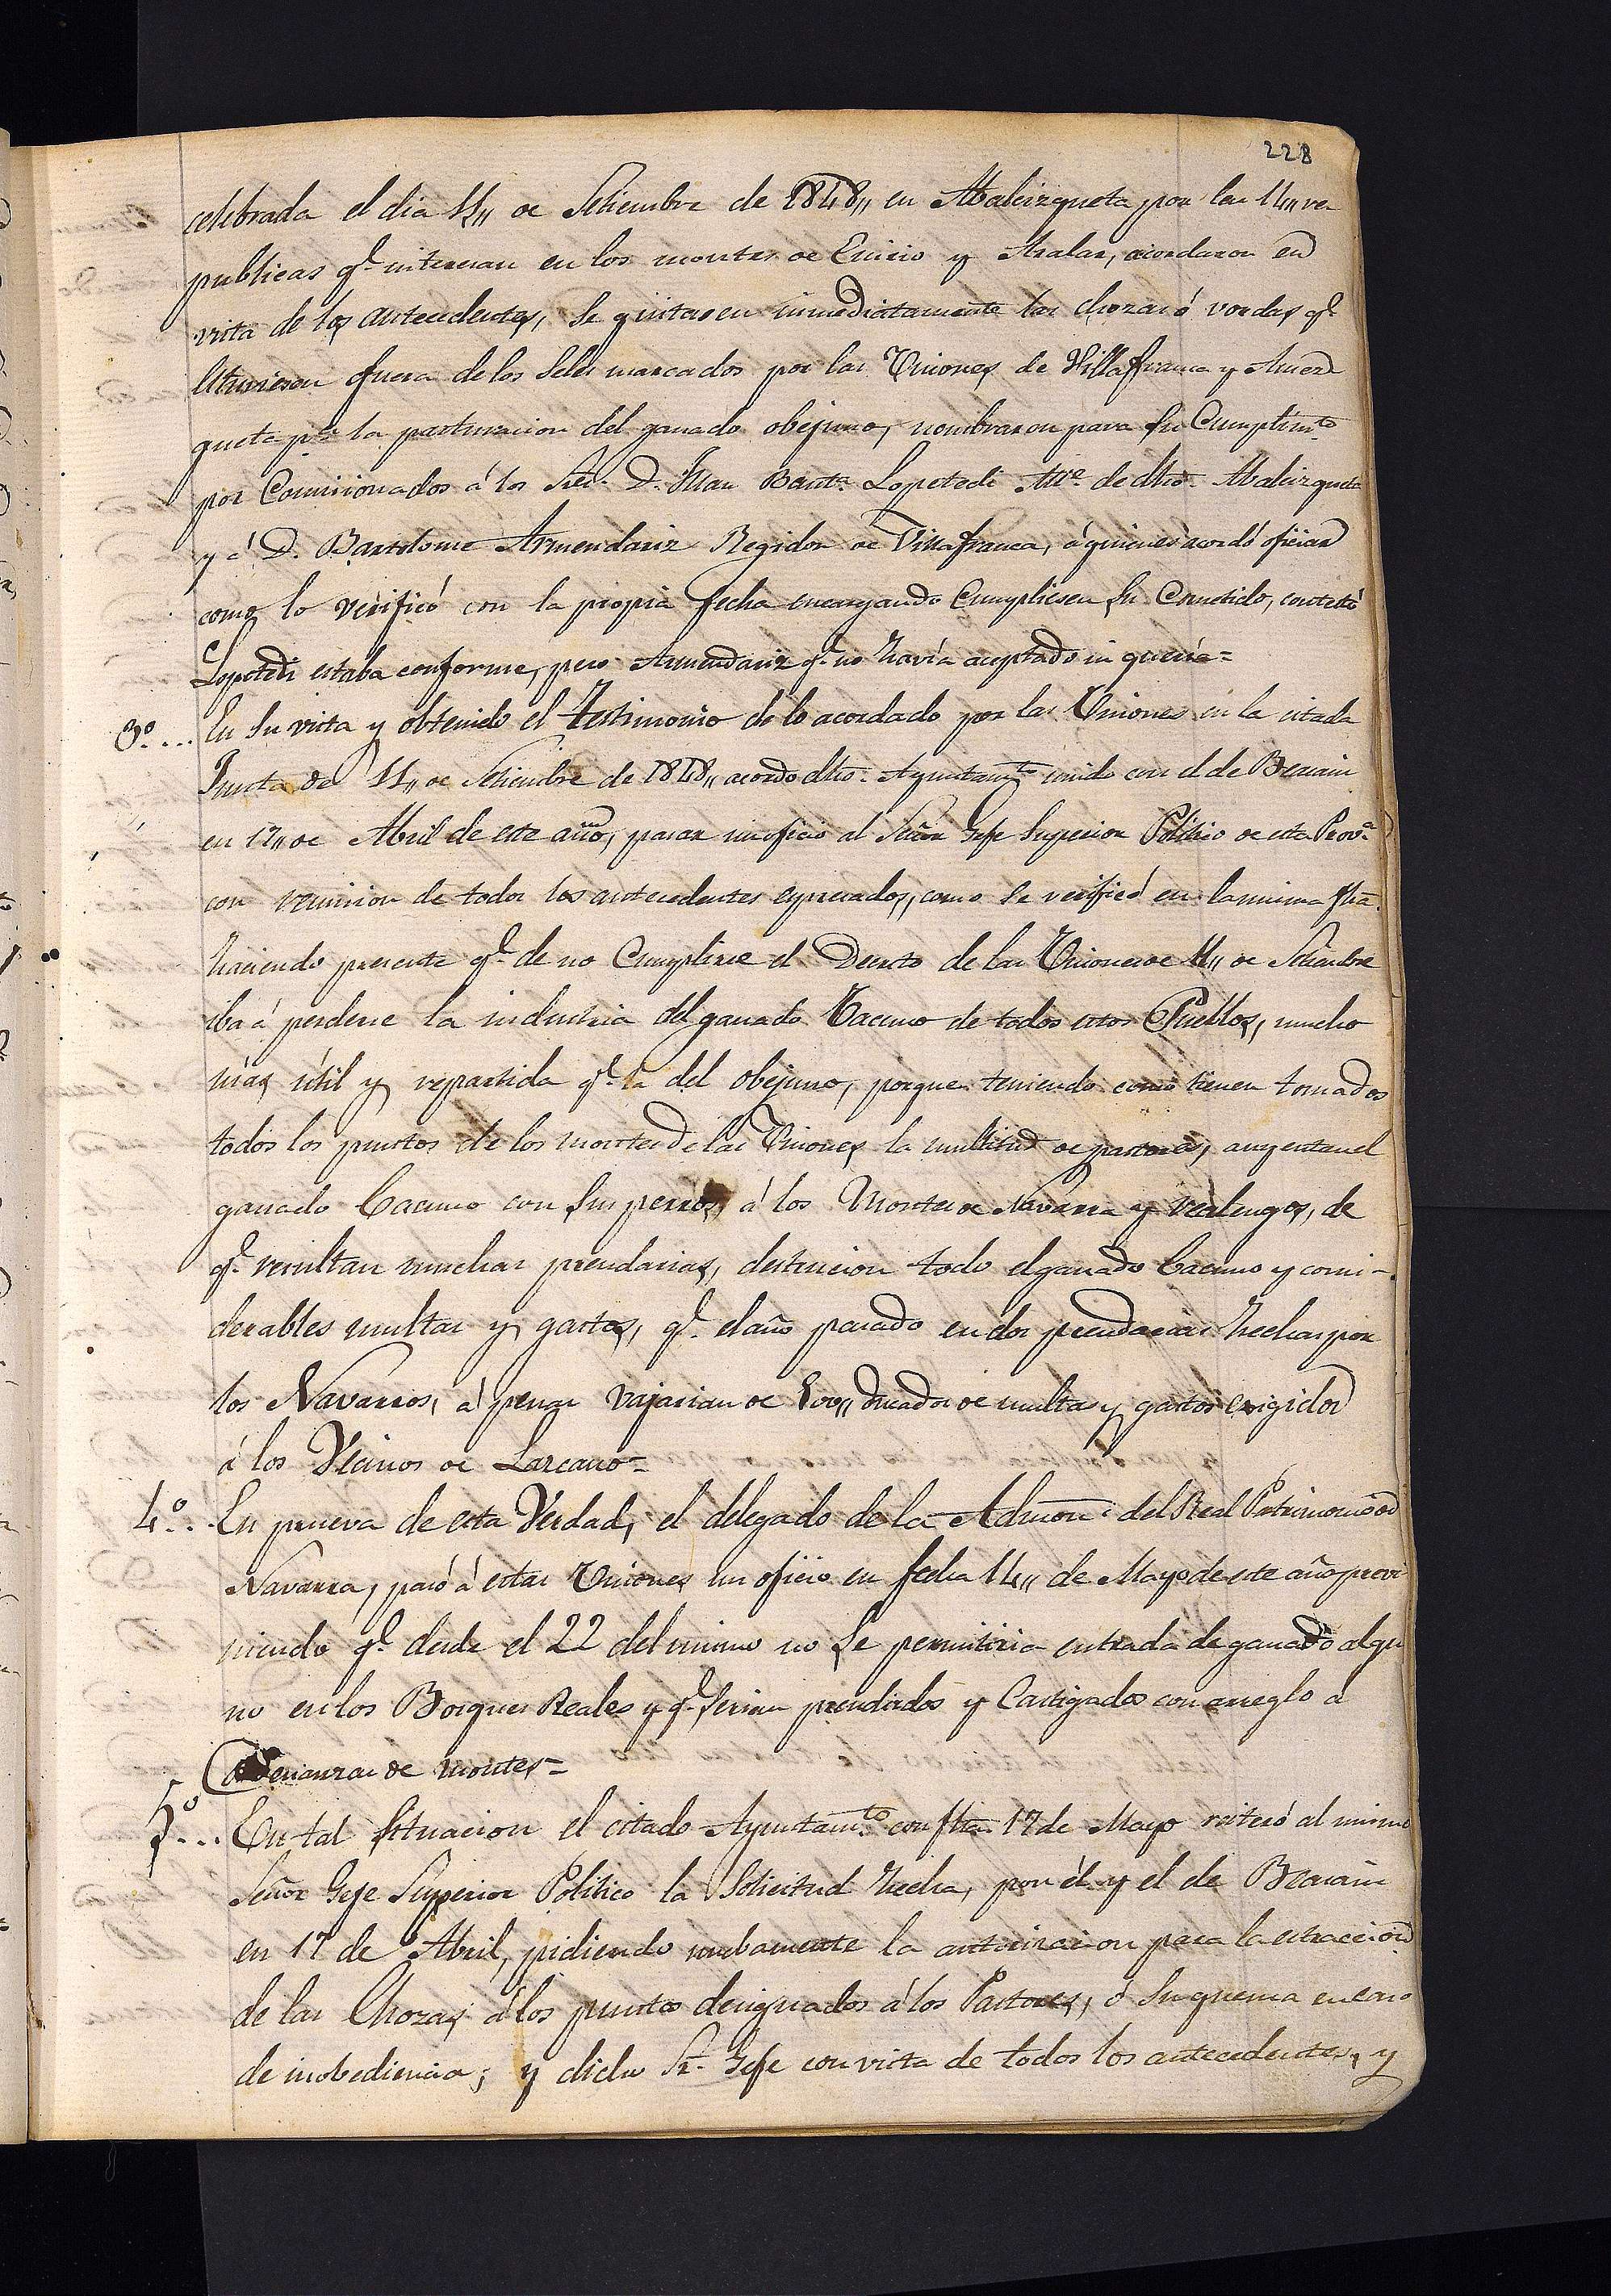 228
celebrada el dia 11,, de Setiembre de 1848,, en Abalcizqueta por las 14,, re
publicas q.e interesan en los montes de Enirio y Aralar, acordaron en
vista de los antecedentes, se quitasen inmediatamente las chozas ó vordas q.e
estuviesen fuera de los Seles marcados por las Uniones de Villafranca y Amez
queta p.a la pasturacion del ganado obejuno, nombraron para su Cumplim.to
por Comisionados á los Sres. D. Juan Baut.a Lopetedi Al.e de dho. Abalcizqueta
y á D. Bartolome Armendariz Regidor de Villafranca, á quienes acordó oficiar
como lo verificó con la propia fecha encargando Cumpliesen su Cometido, contestó
Lopetedi estaba conforme, pero Armendariz q.e no havía aceptado ni quería=
3.º... En su vista y obtenido el Testimonio de lo acordado por las Uniones en la citada
Junta de 11,, de Setiembre de 1848,, acordo dho. Ayuntam.to unido con el de Beasain
en 17,, de Abril de este año, pasar un oficio al Señor Gefe Superior Político de esta Prov.a
con remision de todos los antecedentes espresados, como se verificó en la misma fha.
haciendo presente q.e de no Cumplirse el Decreto de las Uniones de 11,, de Setiembre
iba á perderse la industria del ganado Vacuno de todos estos Pueblos, mucho
más útil y repartida q.e la del obejuno, porque teniendo como tienen tomados
todos los puntos de los montes de las Uniones la multitud de pastores, auyentan el
ganado Vacuno con sus perros, á los Montes de Navarra y realengos, de
q.e resultan muchas prendarias, destruicion todo el ganado Vacuno y consi-
derables multas y gastos, q.e el año pasado en dos prendarias hechas por
los Navarros, á penas vajarian de ducados de multas y gastos exigidos
á los Vecinos de Lazcano=
4.º.. En prueva de esta Verdad, el delegado de la Admon. del Real Patrimonio de
Navarra, pasó á estas Uniones un oficio en fecha 14,, de Mayo de este año previ
niendo q.e desde el 22 del mismo no se permitiria entrada de ganado algu
no en los Bosques Reales y q.e serian prendados y Castigados con arreglo a
Ordenanzas de montes=
5.º... En tal situacion el citado Ayuntam.to con fha. 17 de Mayo reiteró al mismo
Señor Gefe Superior Politico la Solicitud hecha, por él y el de Beasain
en 17 de Abril, pidiendo nuebamente la autorizacion para la estraccion
de las Chozas á los puntos designados á los Pastores, ó su quema en caso
de inobediencia; y dicho Sr. Gefe con vista de todos los antecedentes, y